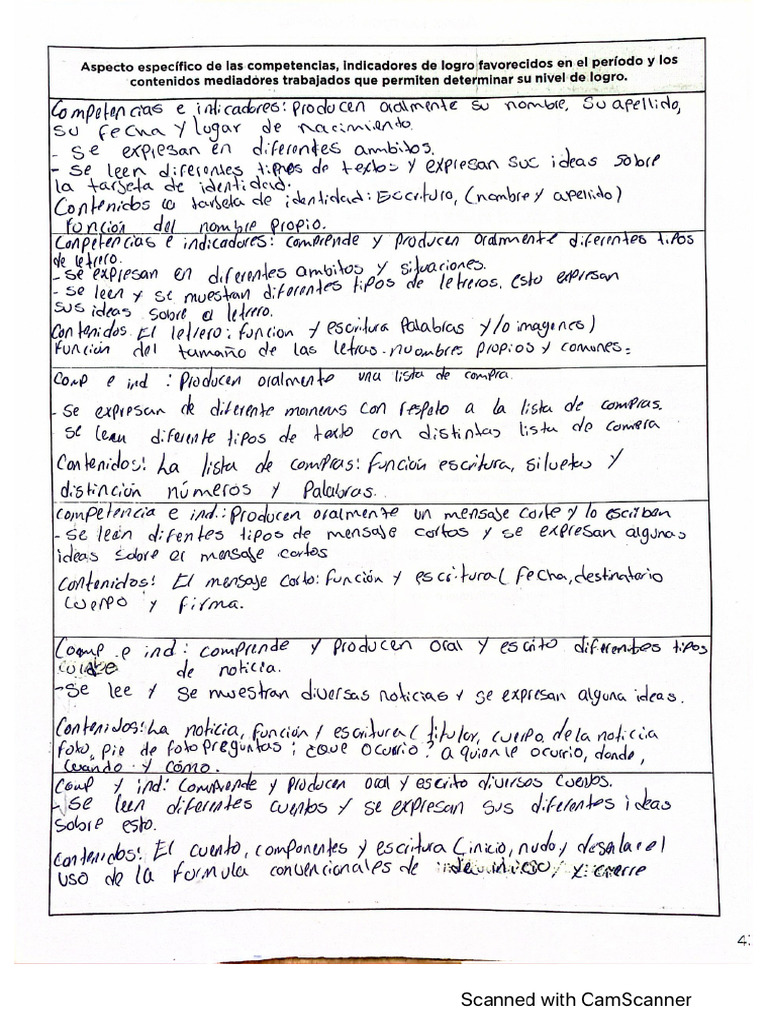 Aspecto específico de las competencias, indicadores de logro favorecidos en el período y los
contenidos mediadores trabajados que permiten determinar su nivel de logro.
Competencias e indicadores: Producen oralmente su nombre, su apellido,
su fecha y lugar de nacimiento.
- Se expresan en diferentes ambitos.
- Se leen diferentes tipos de textos y expresan sus ideas sobre
la tarjeta de identidad.
Contenidos tarjeta de identidad: Escritura, (nombre y apellido)
Función del nombre propio.
Conpetencias e indicadores: comprende y producen oralmente diferentes tipos
de letrero.
- Se expresan en diferentes ambitos y situaciones.
- Se leen y se muestran diferentes tipos de letreros, esto expresan
sus ideas sobre el letrero.
Contenidos. El letrero: funcion y escritura Palabras y/o imagenes)
Función del tamaño de las letras. nuombres propios y comunes.
Comp e ind : Producen oralmente una lista de compra.
- Se expresan de diferente maneras con respeto a la lista de compras.
Se leen diferente tipos de texto con distintas lista de comera
Contenidos: La lista de compras: función escritura, siluetas y
distinción números y Palabras.
Competencia e ind.: Producen oralmente un mensaje corte y lo escriban
- Se leen difentes tipos de mensaje cortos y se expresan algunas
ideas sobre er mensaje cortos
Contenidos: El mensaje corto: función y escritura (fecha, destinatario
cuerpo y firma.
Coomp e ind: comprende y producen oral y escrito diferentes tipos
de noticia.
- Se lee y se muestran diversas noticias y se expresan alguna ideas.
Contenidos: La noticia, función / escritura (titular, cuerpo de la noticia
foto, pie de foto preguntas: ¿que ocurrio? a quien le ocurrio, donde,
cuando y cómo.
Comp y ind: Comprende y producen oral y escrito diversos cuentos.
- Se leen diferentes cuentos y se expresan sus diferentes ideas
sobre esto.
Contenidos: El cuento, componentes y escritura (inicio, nudo y desenlace el
uso de la formula convencionales de inicio, y cierre
Scanned with CamScanner